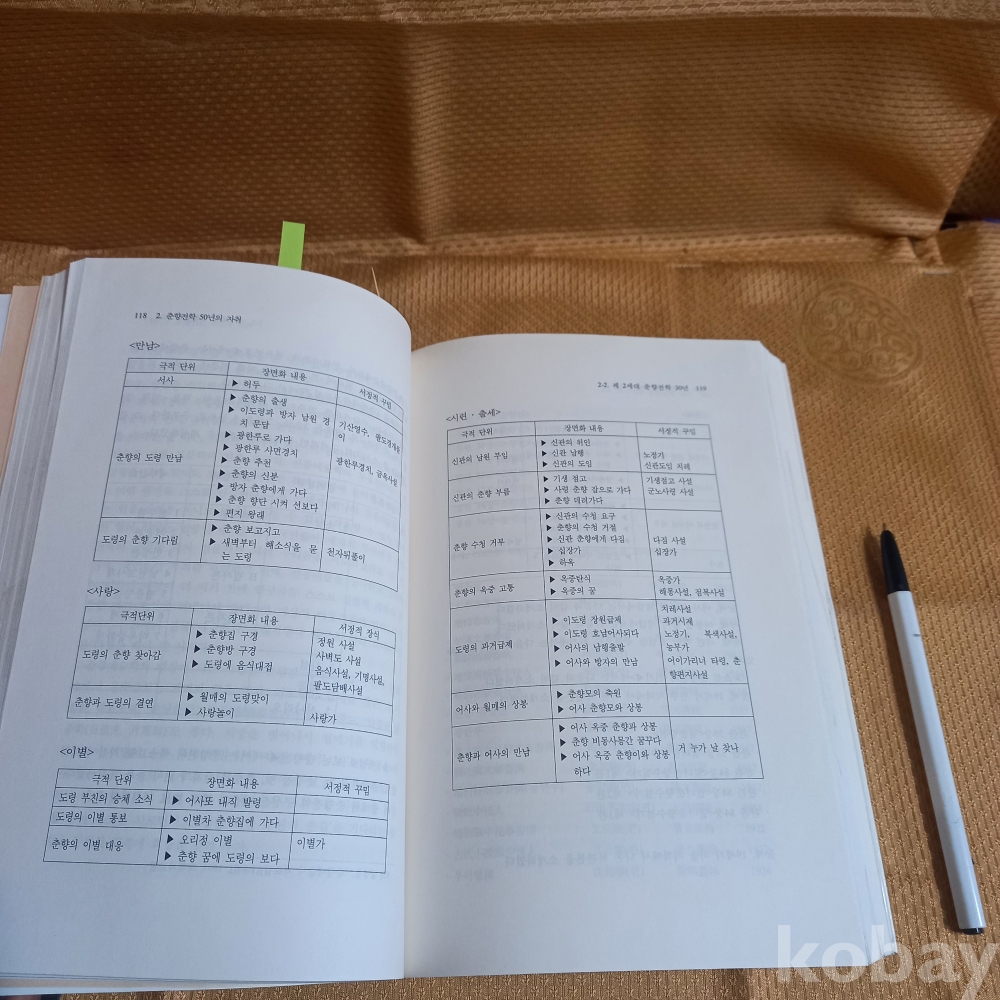 118 2. 춘향전학 50년의 자취
<만남>
극적 단위 장면화 내용 서정적 꾸밈
서사 ▶ 허두
춘향의 도령 만남
▶ 춘향의 출생
▶ 이도령과 방자 남원 경
치 문답
▶ 광한루로 가다
▶ 광한루 사면경치
▶ 춘향 추천
▶ 춘향의 신분
▶ 방자 춘향에게 가다
▶ 춘향 향단 시켜 선보다
▶ 편지 왕래
기산영수, 팔도경개풀
이
광한루경치, 금옥사설
도령의 춘향 기다림
▶ 춘향 보고지고
▶ 새벽부터 해소식을 묻
는 도령
천자뒤풀이
<사랑>
극적단위 장면화 내용 서정적 장식
도령의 춘향 찾아감
▶ 춘향집 구경
▶ 춘향방 구경
▶ 도령에 음식대접
정원 사설
사벽도 사설
음식사설, 기명사설,
팔도담배사설
춘향과 도령의 결연
▶ 월매의 도령맞이
▶ 사랑놀이
사랑가
<이별>
극적 단위 장면화 내용 서정적 꾸밈
도령 부친의 승체 소식 ▶ 어사또 내직 발령
도령의 이별 통보 ▶ 이별차 춘향집에 가다
춘향의 이별 대응
▶ 오리정 이별
▶ 춘향 꿈에 도령의 보다
이별가
2-2. 제 2세대 춘향전학 30년 119
<시련 · 출세>
극적 단위 장면화 내용 서정적 꾸밈
신관의 남원 부임
▶ 신관의 위인
▶ 신관 남행
▶ 신관의 도임
노정기
신관도임 치레
신관의 춘향 부름
▶ 기생 점고
▶ 사령 춘향 잡으로 가다
▶ 춘향 데려가다
기생점고 사설
군노사령 사설
춘향 수청 거부
▶ 신관의 수청 요구
▶ 춘향의 수청 거절
▶ 신관 춘향에게 다짐
▶ 십장가
▶ 하옥
다짐 사설
십장가
춘향의 옥중 고통
▶ 옥중탄식
▶ 옥중의 꿈
옥중가
해몽사설, 점복사설
도령의 과거급제
▶ 이도령 장원급제
▶ 이도령 호남어사되다
▶ 어사의 남행출발
▶ 어사와 방자의 만남
치레사설
과거시제
노정기, 복색사설,
농부가
어이가리너 타령, 춘
향편지사설
어사와 월매의 상봉
▶ 춘향모의 축원
▶ 어사 춘향모와 상봉
춘향과 어사의 만남
▶ 어사 옥중 춘향과 상봉
▶ 춘향 비몽사몽간 꿈꾸다
▶ 어사 옥중 춘향이와 상봉
하다
거 누가 날 찾나
kobay